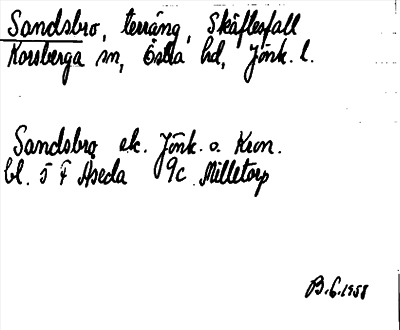 Sandsbro, terräng, Skäflesfall
Korsberga sn, Östra hd, Jönk. l.
Sandsbro ek. Jönk. o. Kron.
bl. 5 F Åseda 9c Milletorp
B.G.1958